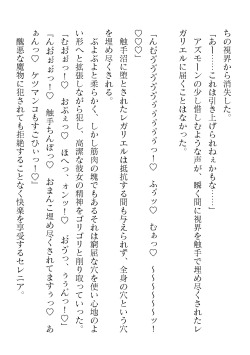 ちの視界から消失した。
「あー……これは引き上げられねぇかもな……」
　アズモーンの少し惜しような声が、瞬く間に視界を触手で埋め尽くされたレ
ガリエルに届くことはなかった。
「んむゔゔゔゔゔゔゔぅぅぅっ！　ふぅッ♡　むぁっ♡　〜〜〜〜〜〜ッ！
♡♡♡」
　触手沼に堕とされたレガリエルは抵抗する間も与えられず、全身の穴という穴
を埋め尽くされる。
　ぶよぶよと柔らかく、しかし筋肉の塊でもあるそれは窮屈な穴を使い心地のよ
い形へと拡張しながら犯し、高潔な彼女の精神をゴリゴリと削り取っていった。
「むおぉっ！♡　おぶぇっ♡　ほへっ、ォンッ！♡　おゔっ、ぅぅんっ！♡」
『んおぉぉっ！♡　触手ちんぽっ♡　おまんこ埋め尽くされてますぅっ♡　あ
ぁんっ♡　ケツマンコもすごひぃっ！♡』
　醜悪な魔物に犯されても拒絶することなく快楽を享受するセレニア。